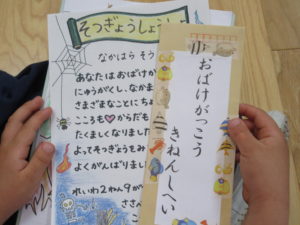 そつぎょうしょうしょ
なかはら そう
あなたは おばけが
にゅうがくし、なかま
さまざまなことにちょ
こころも♥からだも
たくましくなりました
よってそつぎょうをみ
よくがんばりまし
れいわ2ねん9が
ささ
おばけがっこう
きねんしへい